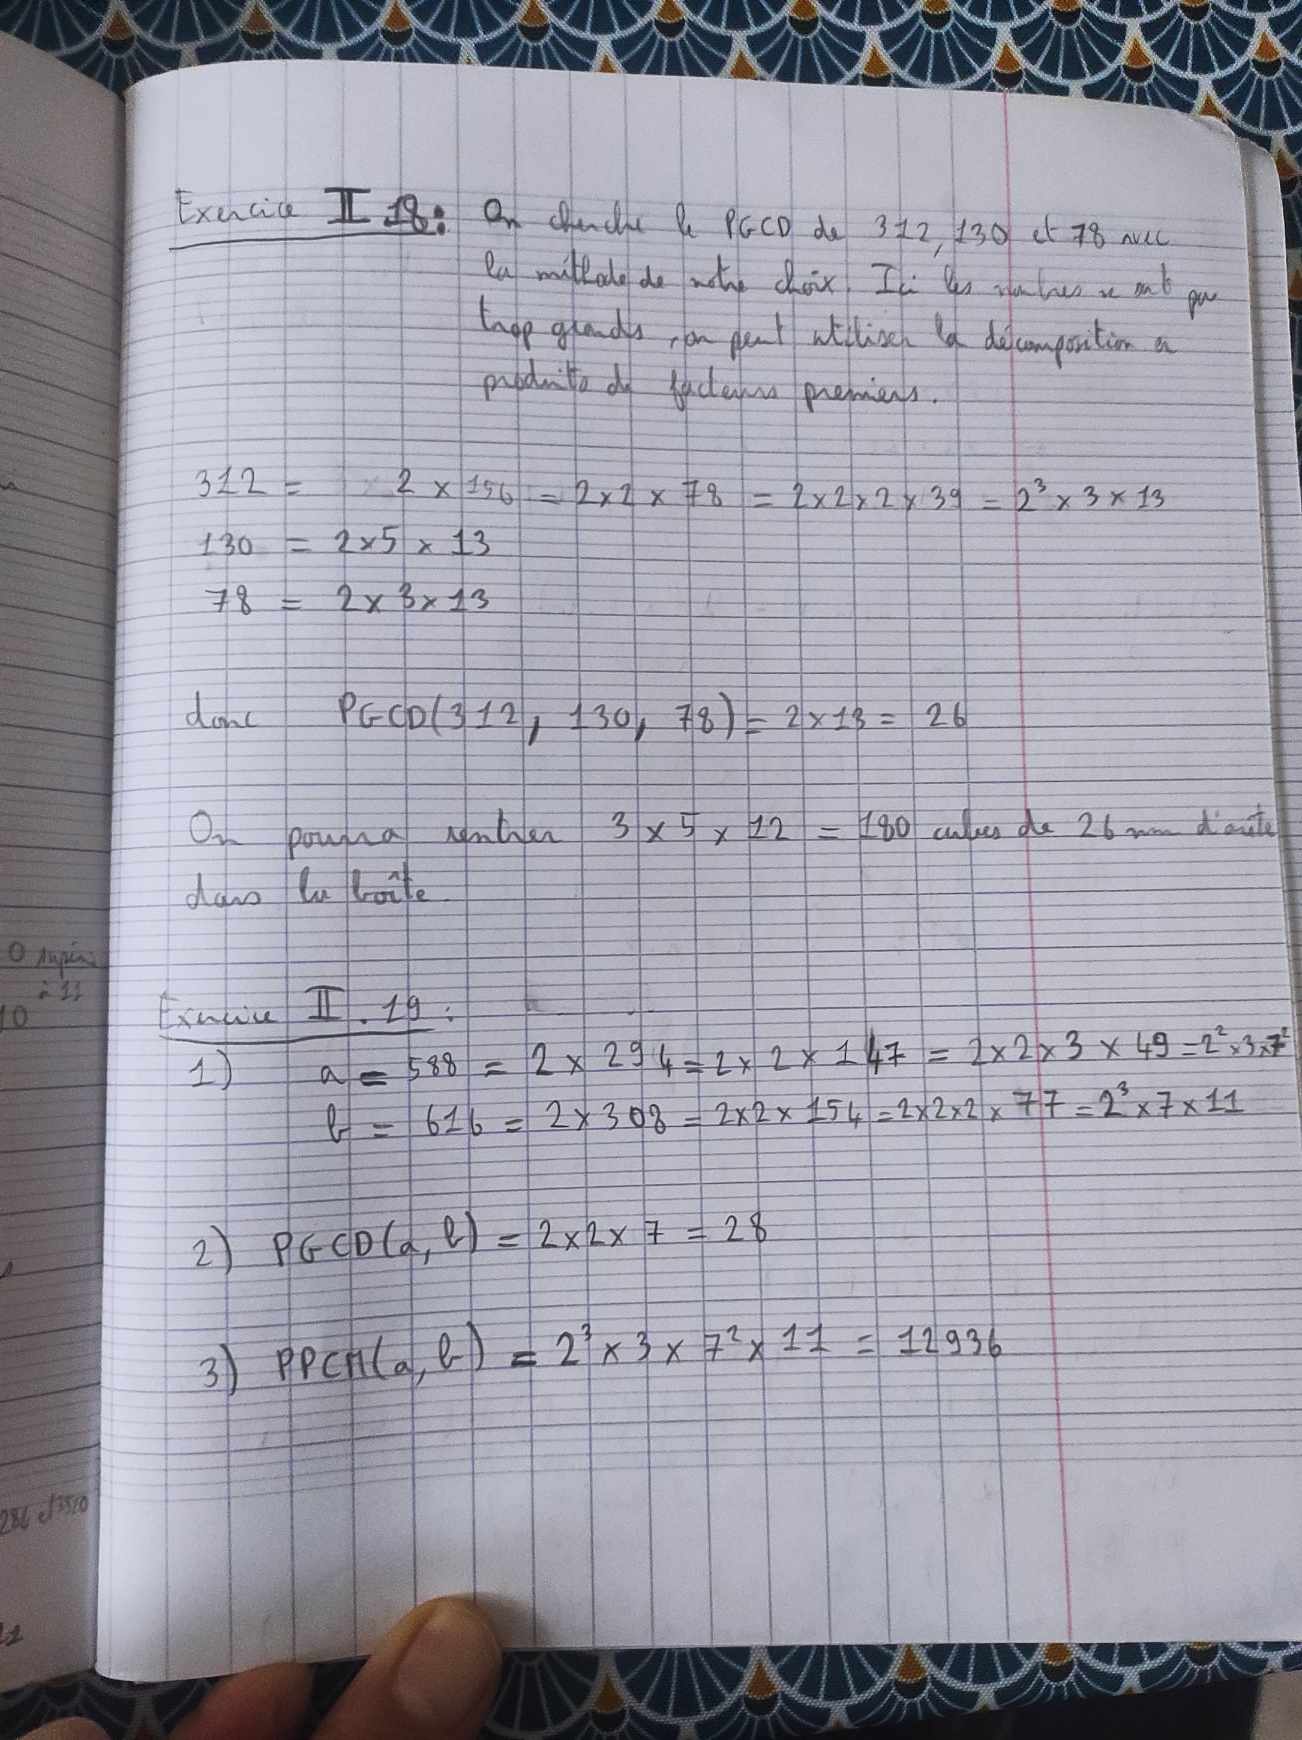 Exercice II 18: On cherche le PGCD de 312, 130 et 78 avec
la méthode de notre choix. Ici les nombres ne sont pas
trop grands, on peut utiliser la décomposition en
produits de facteurs premiers.
312 = 2 × 156 = 2×2 × 78 = 2×2×2×39 = 2³ × 3 × 13
130 = 2×5 × 13
78 = 2× 3×13
donc PGCD(312, 130, 78) = 2×13 = 26
On pourra rentrer 3 × 5 × 12 = 180 cubes de 26 mm d'arête
dans la boîte.
Exercice II.19:
1) a = 588 = 2 × 294 = 2× 2 × 147 = 2×2×3 × 49 = 2²×3×7²
b = 616 = 2×308 = 2×2× 154 = 2×2×2× 77 = 2³×7×11
2) PGCD(a, b) = 2×2× 7 = 28
3) PPCM(a, b) = 2³ × 3 × 7² × 11 = 12936
0 supéri
à 11
10
286 et
11